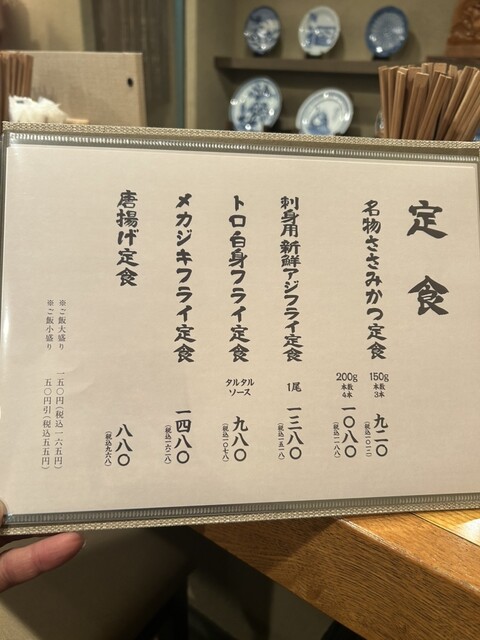 定食
名物ささみかつ定食
150g 本数3本 九二〇 (税込一〇一二)
200g 本数4本 一〇八〇 (税込一一八八)
刺身用新鮮アジフライ定食 1尾 一三八〇 (税込一五一八)
トロ白身フライ定食 タルタルソース 九八〇 (税込一〇七八)
メカジキフライ定食 一四八〇 (税込一六二八)
唐揚げ定食 八八〇 (税込九六八)
※ご飯大盛り 一五〇円(税込一六五円)
※ご飯小盛り 五〇円引(税込五五円)